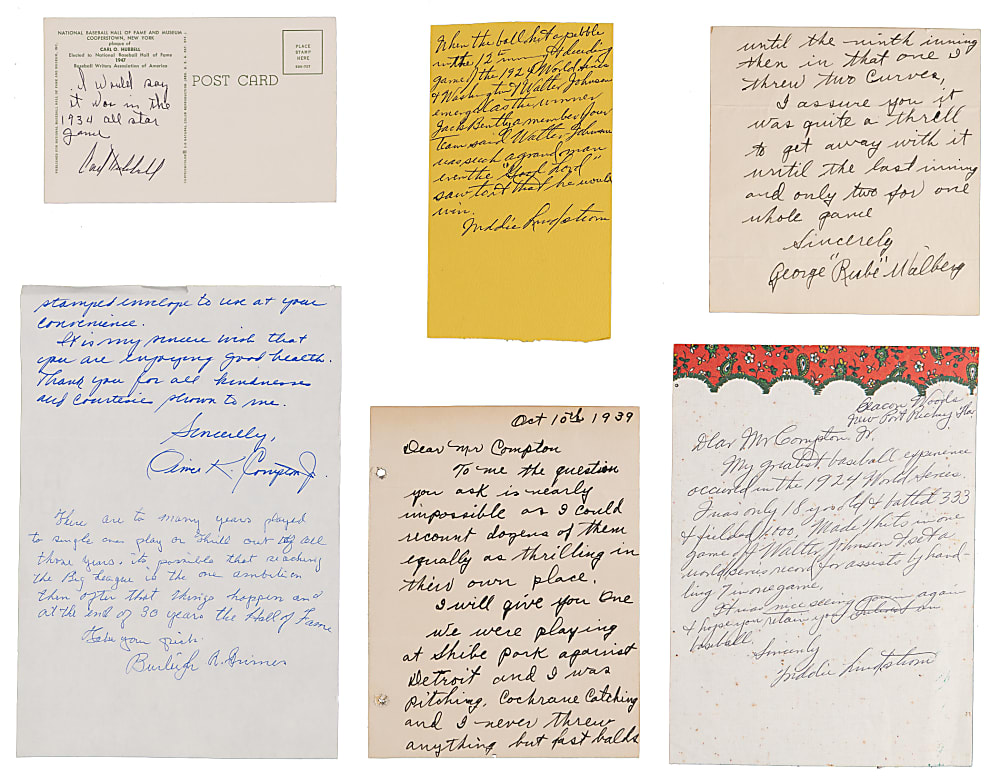 NATIONAL BASEBALL HALL OF FAME AND MUSEUM
COOPERSTOWN, NEW YORK
plaque of
CARL O. HUBBELL
Elected to National Baseball Hall of Fame
1947
Baseball Writers Association of America
PLACE
STAMP
HERE
POST CARD
I would say
it was in the
1934 all star
game
Carl Hubbell
When the ball hit a pebble
in the 12th inn of deciding
game of the 1924 World Series
& Washington & Walter Johnson
emerged as the winner
Jack Bentley a member of our
team said "Walter Johnson
was such a grand man
even the "Good Lord"
saw to it that he would
win.
Freddie Lindstrom
until the ninth inning
then in that one I
threw two curves,
I assure you it
was quite a thrill
to get away with it
until the last inning
and only two for one
whole game
Sincerely
George "Rube" Walberg
stamped envelope to use at your
convenience.
It is my sincere wish that
you are enjoying good health.
Thank you for all kindness
and courtesie shown to me.
Sincerely,
K. Compton Jr.
There are to many years played
to single one play or thrill out of all
those years. its possible that reaching
the Big League is the one ambition
then after that things happen and
at the end of 30 years the Hall of Fame
take your pick
Burleigh A. Grimes
Oct 10th 1939
Dear Mr Compton
To me the question
you ask is nearly
impossible as I could
recount dozens of them
equally as thrilling in
their own place.
I will give you one
we were playing
at Shibe park against
Detroit and I was
pitching, Cochrane catching
and I never threw
anything but fast balls
Beacon Woods
New Port Richey Fla
Dear Mr Compton Jr.
My greatest baseball experience
occured in the 1924 World Series.
I was only 18 yrs old & batted 333
& fielded 1000. Made 4 hits in one
game off Walter Johnson & set a
world series record for assists by hand-
ling 7 in one game.
It was nice seeing you again
& hope you retain your interest in
baseball.
Sincerely
Freddie Lindstrom